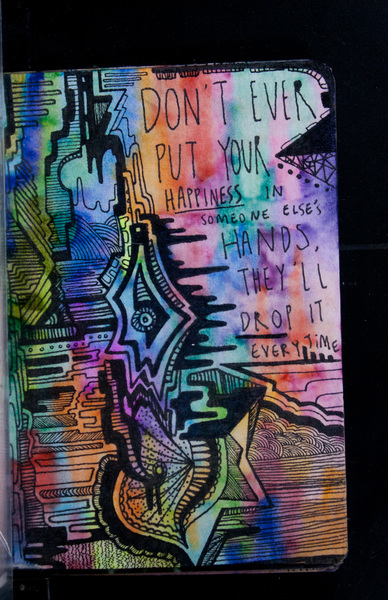 DON'T EVER
PUT YOUR
HAPPINESS IN
SOMEONE ELSE'S
HANDS,
THEY'LL
DROP IT
EVERYTIME